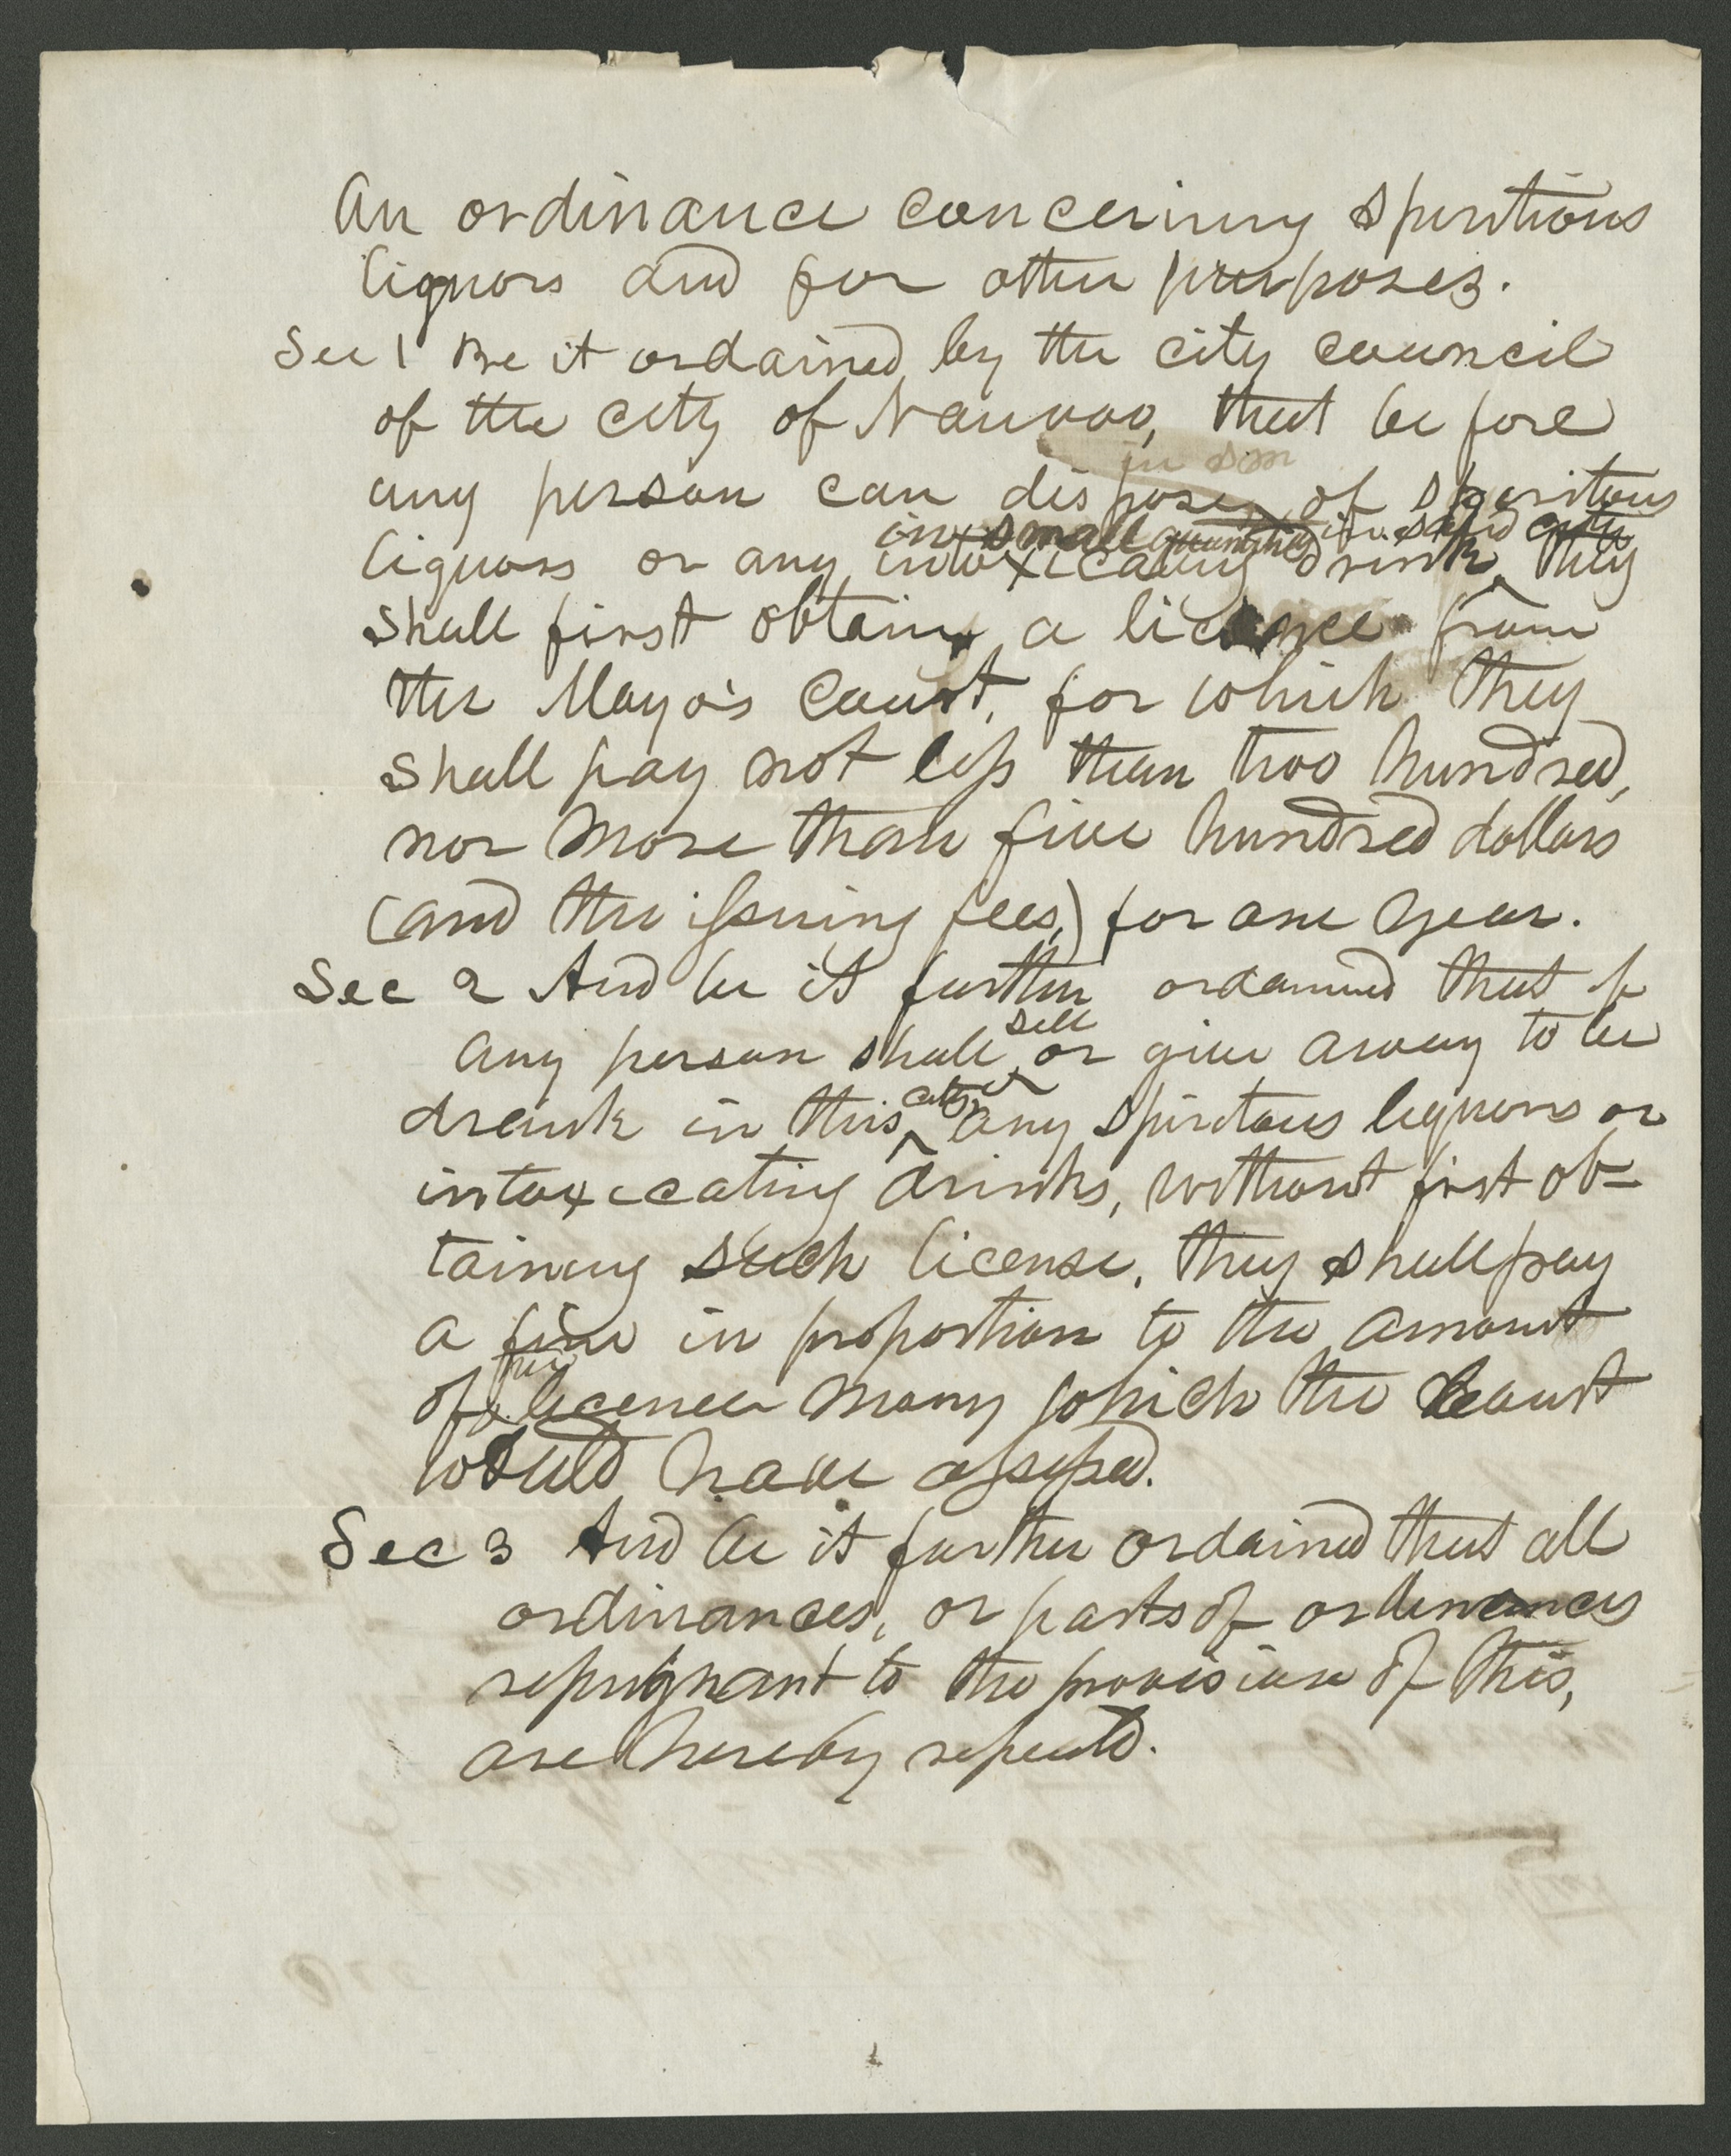 An ordinance concerning spiritious
liquors and for other purposes.
Sec 1 Be it ordained by the city council
of the city of Nauvoo, that before
any person can dispose, of spiritous
in small quantities in said city
liquors or any intoxicating drink, they
shall first obtain, a licence from
the Mayo's Court, for which they
shall pay not less than two hundred,
nor more than five hundred dollars
(and the issuing fees,) for one year.
Sec 2 And be it further ordained that if
sell
any person shall, or give away to be
city
drank in this any spiritous liquors or
intoxicating drinks, without first ob-
taining such license, they shall pay
a fine in proportion to the amount
of licence money which the Court
would have assessed.
Sec 3 And be it further ordained that all
ordinances, or parts of ordinances
repugnant to the provision of this,
are hereby repeald.